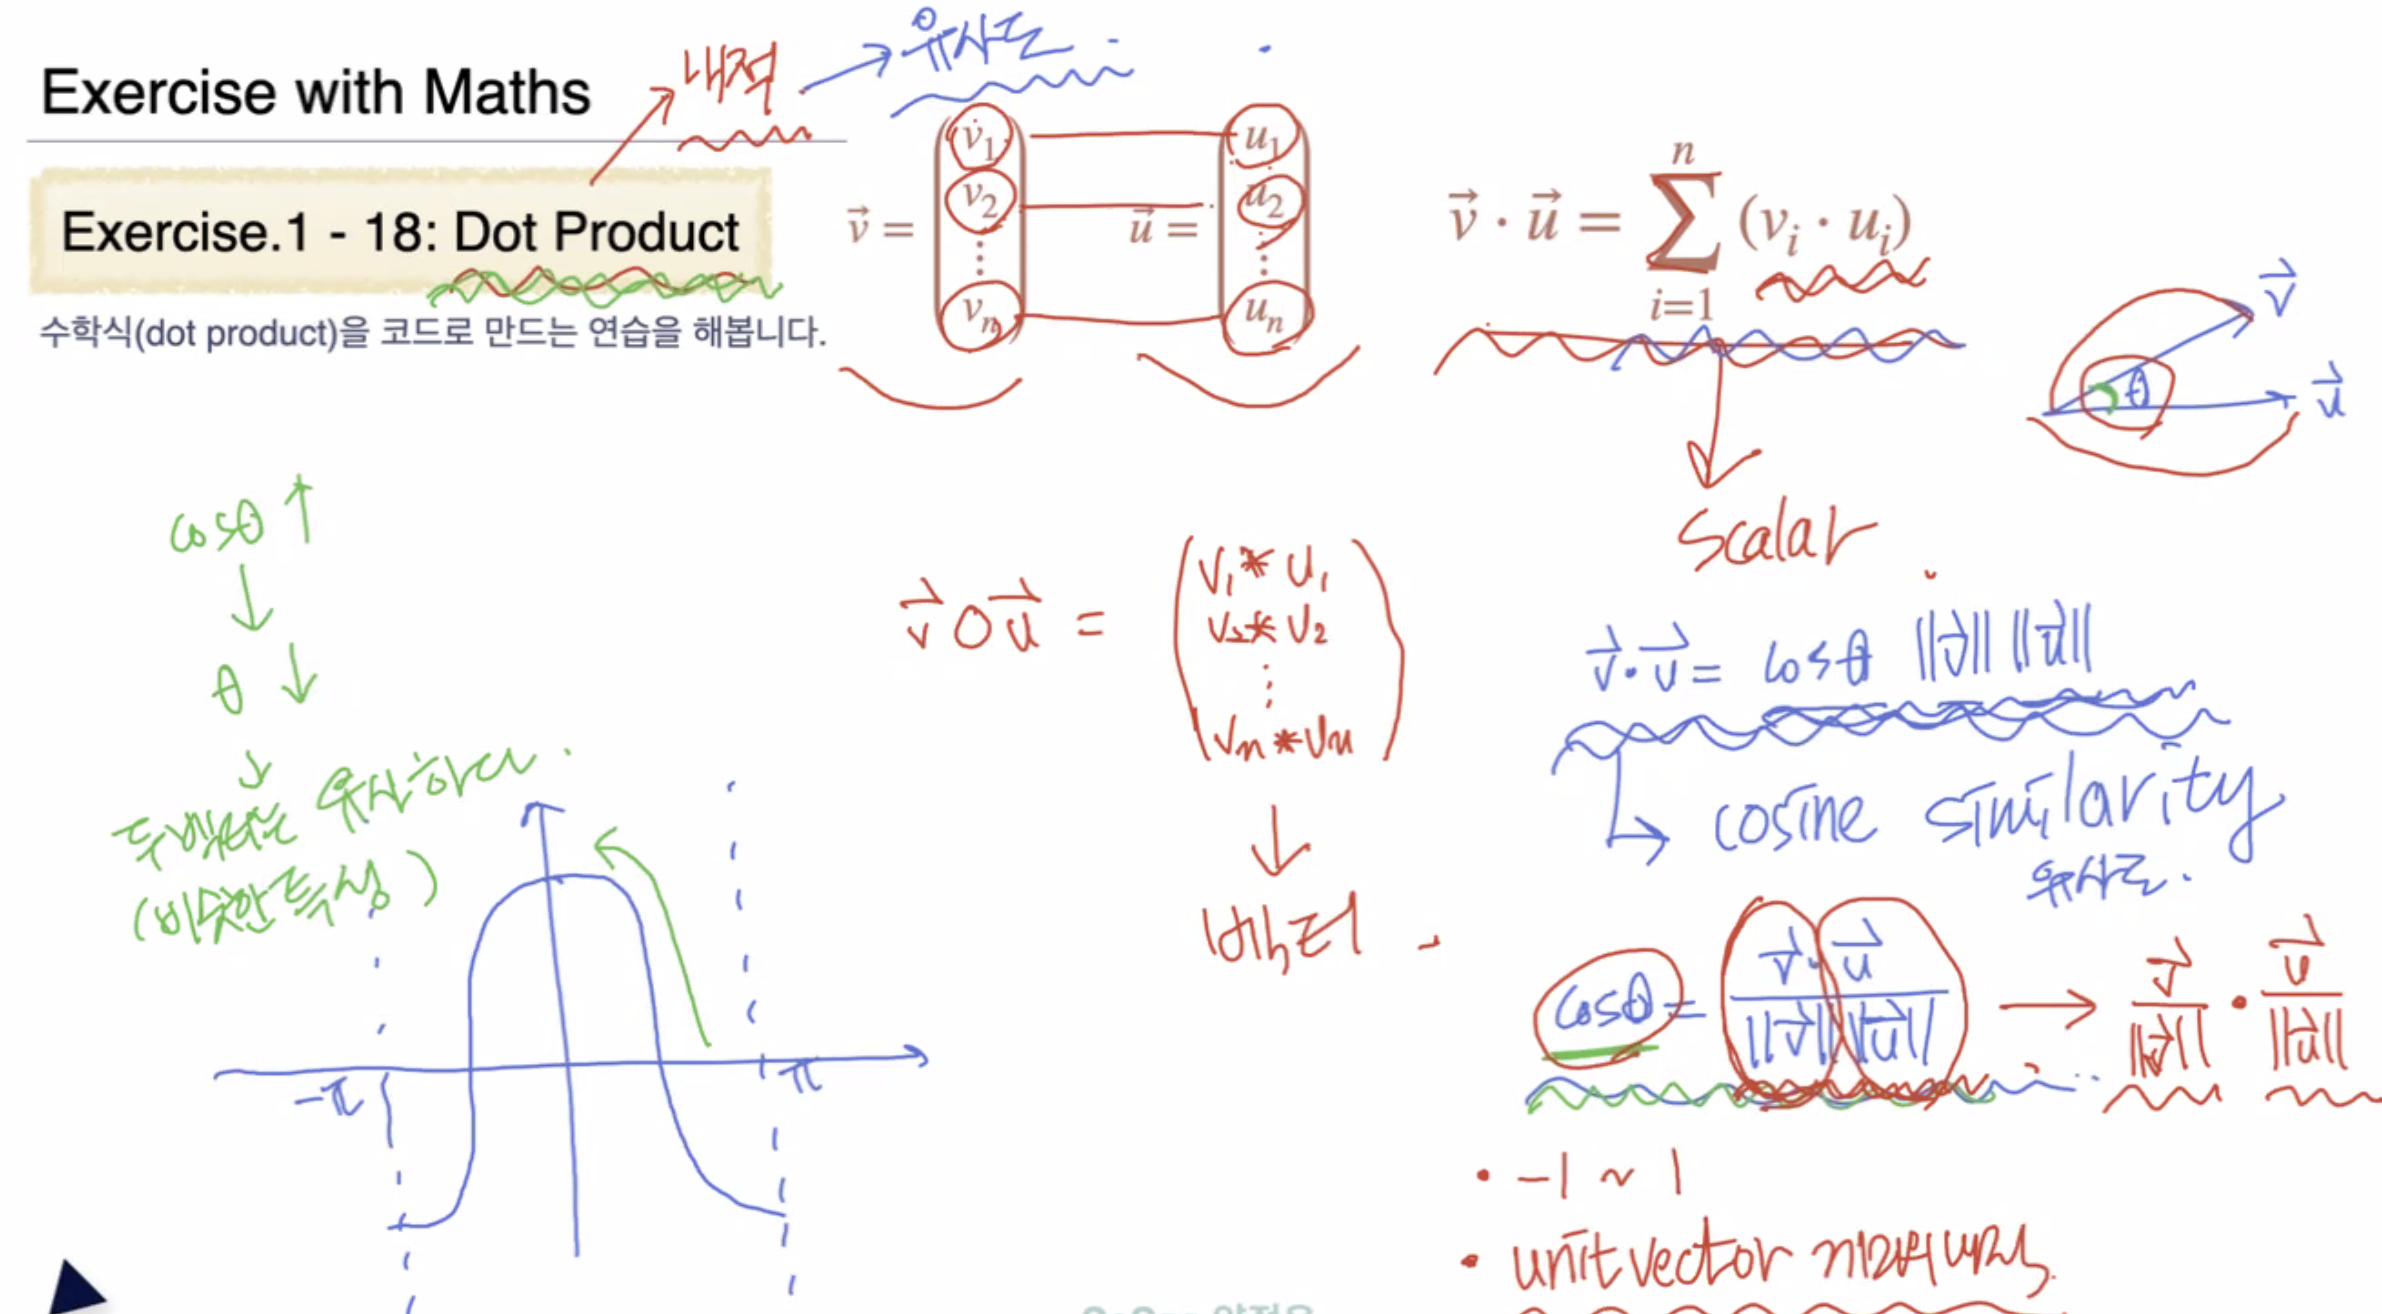 Exercise with Maths
내적
유사도
Exercise.1 - 18: Dot Product
수학식(dot product)을 코드로 만드는 연습을 해봅니다.
v⃗ = (v₁ v₂ ⋮ vₙ) u⃗ = (u₁ u₂ ⋮ uₙ)
v⃗ · u⃗ = ∑ⁿᵢ₌₁ (vᵢ · uᵢ)
v⃗
θ
u⃗
scalar
cosθ ↑
↓
θ ↓
↓
두 벡터는 유사하다.
(비슷한 특성)
-π
π
v⃗ ○ u⃗ = (v₁ * u₁
v₂ * u₂
⋮
vₙ * uₙ)
↓
벡터
v⃗ · u⃗ = cosθ ||v⃗|| ||u⃗||
cosine similarity
유사도.
cosθ = v⃗ · u⃗ / ||v⃗|| ||u⃗|| → v⃗ / ||v⃗|| • u⃗ / ||u⃗||
• -1 ~ 1
• unit vector